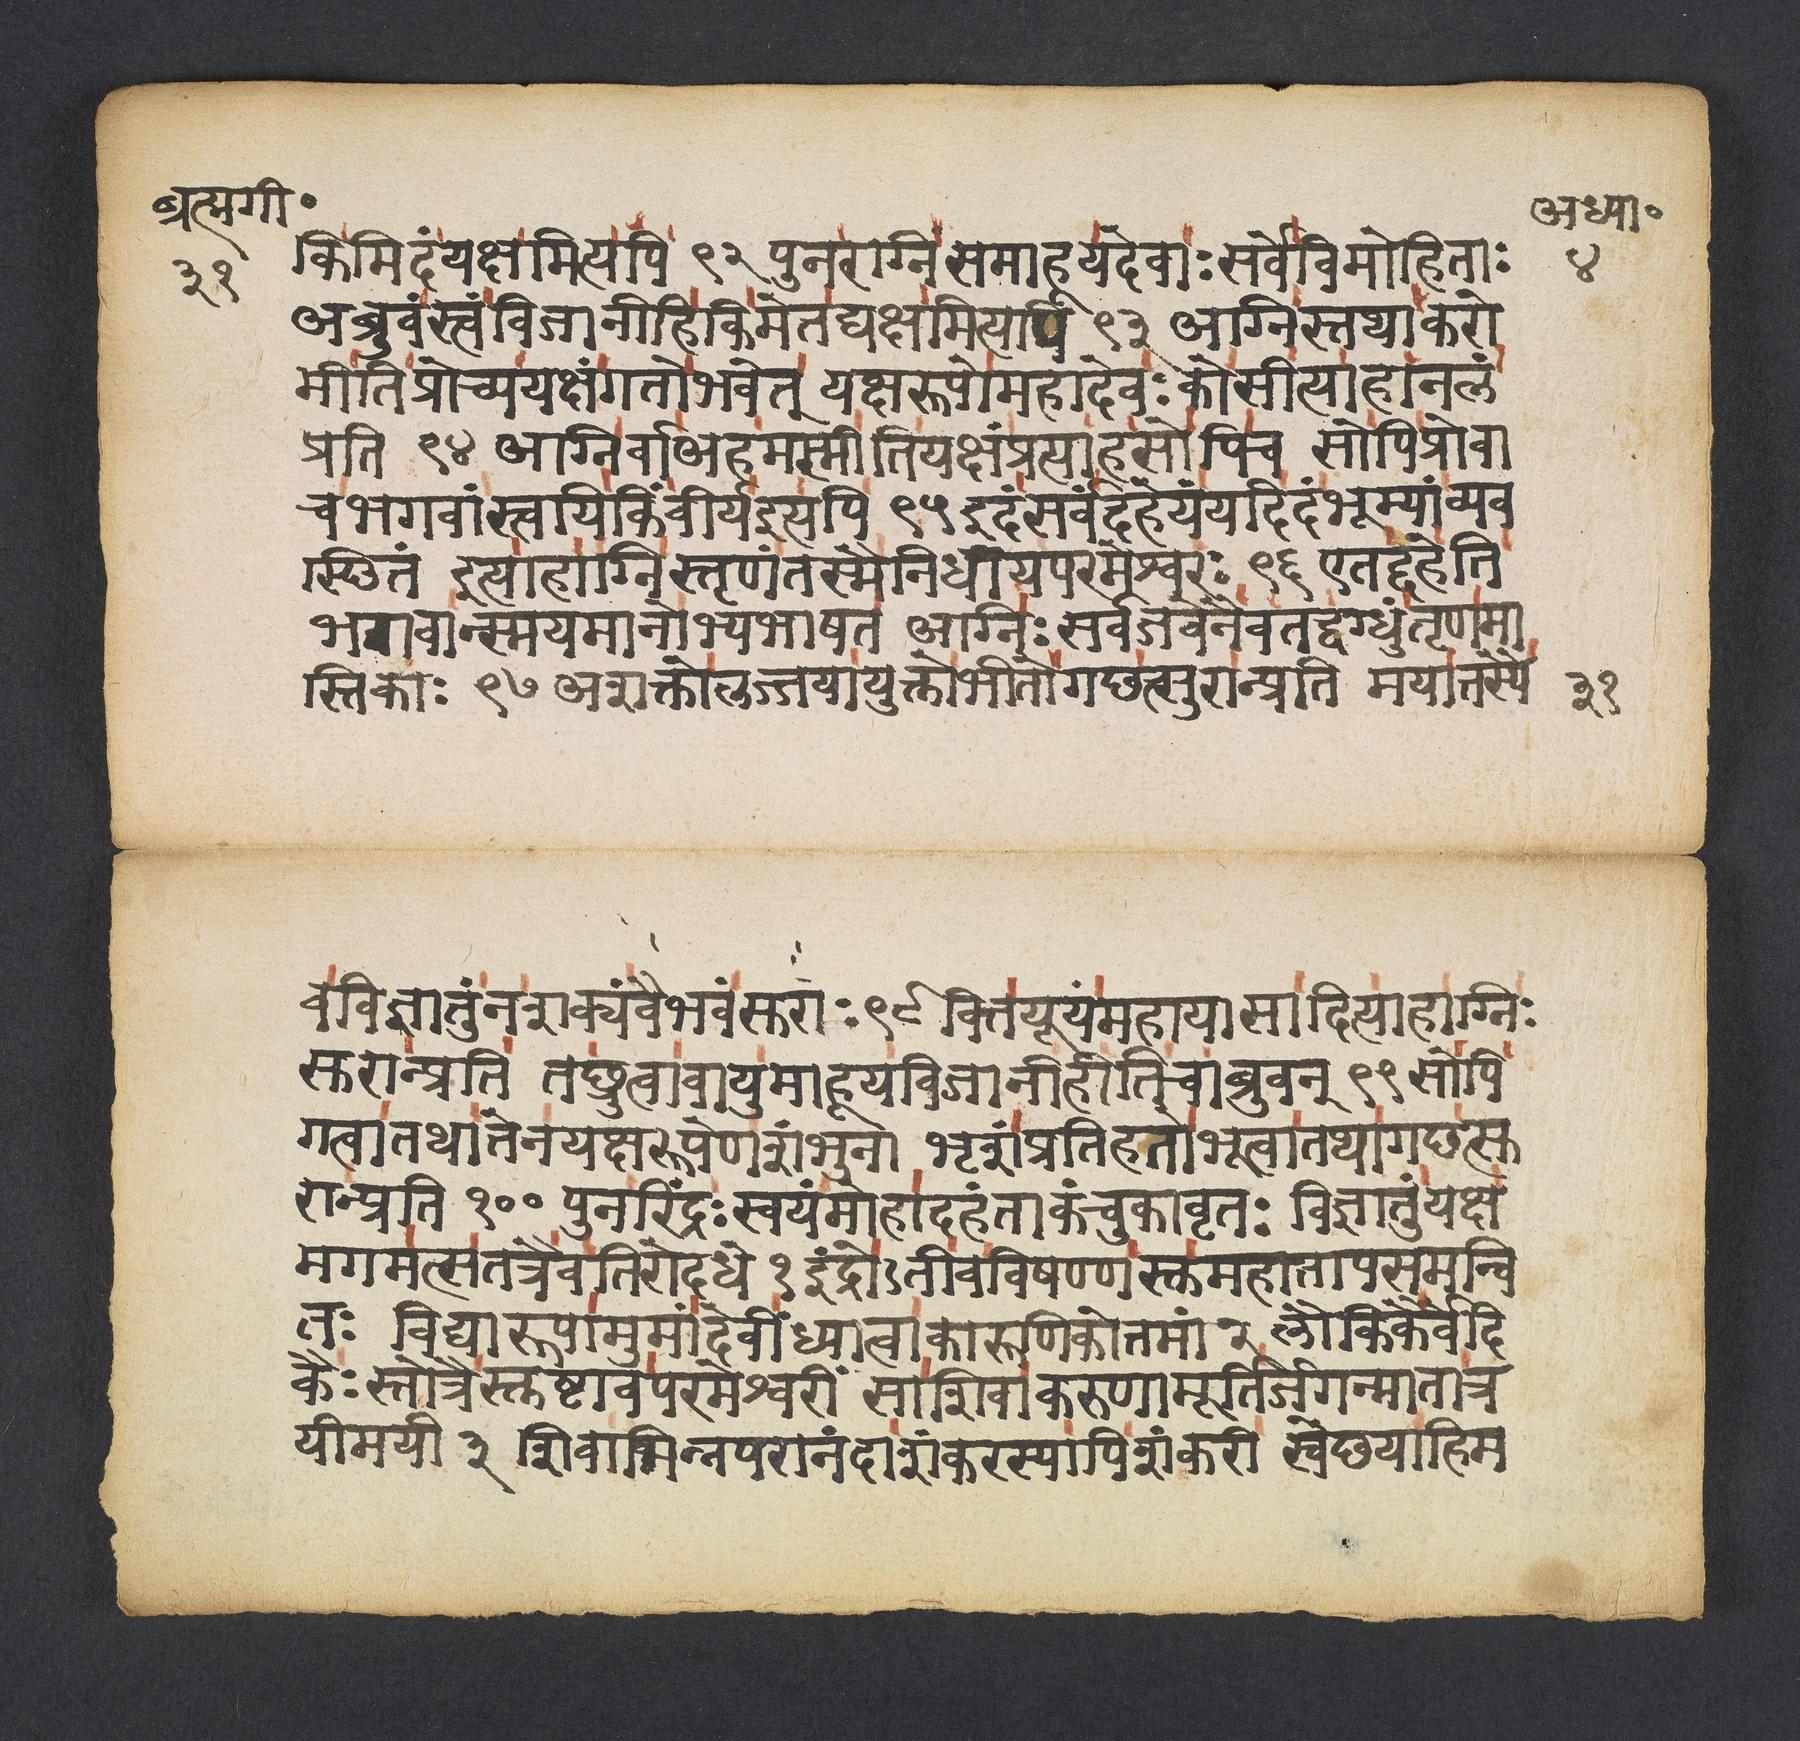 ब्रह्मगी॰
अध्या॰
३१
४
किमिदंयक्षमित्यपि ९२ पुनराग्निंसमाहूयदेवाःसर्वेविमोहिताः
अब्रुवंस्त्वंविजानीहिकिमेतद्यक्षमित्यपि ९३ अग्निस्तथाकरो
मीतिप्रोच्ययक्षंगतोभवेत् यक्षरूपोमहादेवःकोसीत्याहानलं
प्रति ९४ अग्निर्वाअहमस्मीतियक्षंप्रत्याहसोपिच सोपिप्रोवा
चभगवांस्त्वायिकिंवीर्यइत्यपि ९५ इदंसर्वंदहेयंयदिदंभूम्यांव्यव
स्थितं इत्याहाग्निस्तृणंतस्मैनिधायपरमेश्वरः ९६ एतद्दहेति
भगवान्स्मयमानोभ्यभाषत अग्निःसर्वजवेनैवतद्दग्धुंतृणमा
स्तिकाः ९७ अशक्तोलज्जयायुक्तोभीतोगछत्सुरान्प्रति मयातस्यै
३१
वविज्ञातुंनशक्यंवैभवंसुराः ९८ वित्तियूयंमहायासादित्याहाग्निः
सुरान्प्रति तछ्रुत्वावायुमाहूयविजानीहीतिचाब्रुवन् ९९ सोपि
गत्वातथातेनयक्षरूपेणशंभुना भृशंप्रतिहतोभूत्वातथागछत्सु
रान्प्रति १०० पुनरिंद्रःस्वयंमोहादहंताकंचुकावृतः विज्ञातुंयक्ष
मगमत्सतत्रैवतिरोदधे १ इंद्रोऽतीवविषण्णस्तुमहातापसमन्वि
तः विद्यारूपामुमांदेवींध्यात्वाकारुणिकोत्तमां २ लौकिकैर्वैदि
कैःस्तोत्रैस्तुष्टावपरमेश्वरीं साशिवाकरुणामूर्तिर्जगन्मातात्र
यीमयी ३ शिवाभिन्नपरानंदाशंकरस्यापिशंकरी स्वेछयाहिम